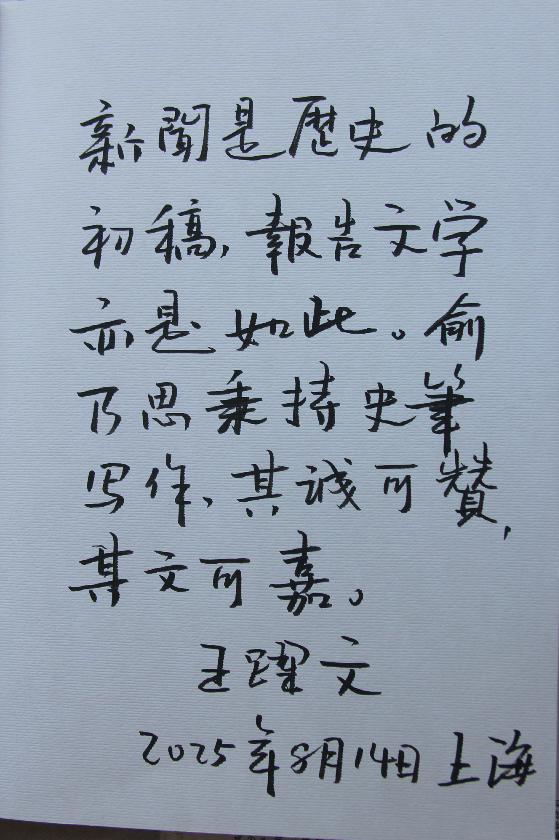 新聞是歷史的
初稿，報告文学
亦是如此。俞
乃思秉持史筆
写作，其诚可贊，
其文可嘉。
王躍文
2025年8月14日上海